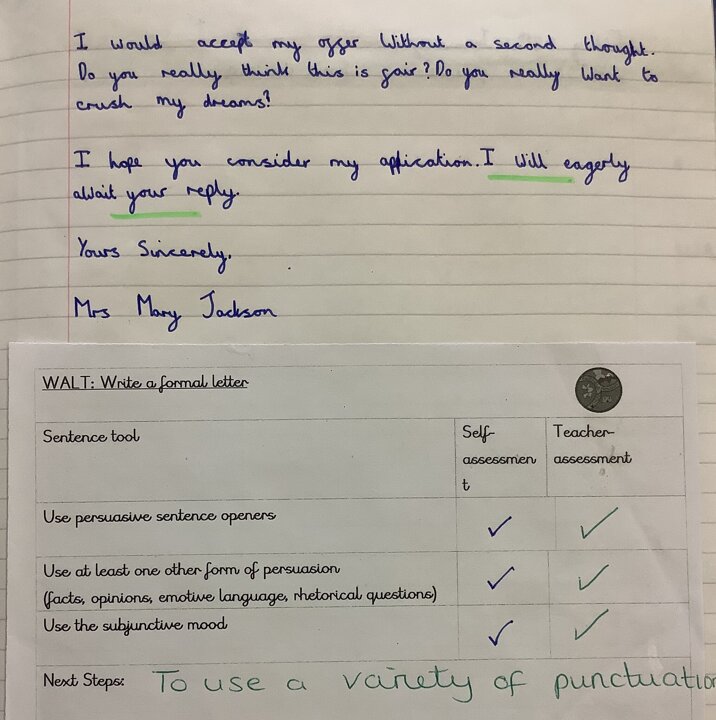 I would accept my offer Without a second thought.
Do you really think this is fair? Do you really Want to
crush my dreams?
I hope you consider my application. I Will eagerly
aWait your reply.
Yours Sincerely,
Mrs Mary Jackson
WALT: Write a formal letter
Sentence tool
Self-
assessmen
t
Teacher-
assessment
Use persuasive sentence openers
Use at least one other form of persuasion
(facts, opinions, emotive language, rhetorical questions)
Use the subjunctive mood
Next Steps: To use a variety of punctuation